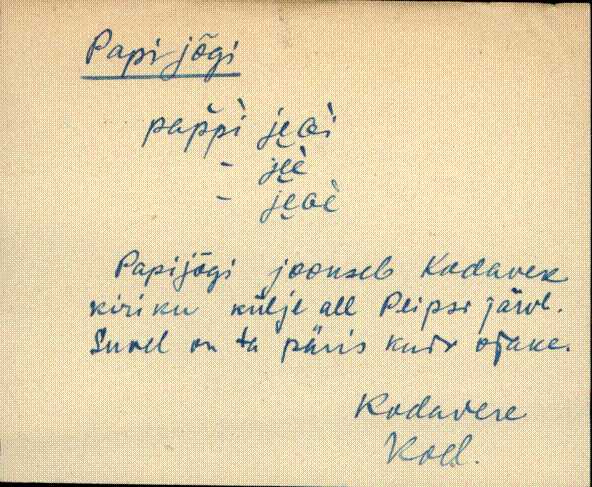 Papijõgi
pap̆pì je̮ɢi
- je̮è
- je̮ɢè
Papijõgi joonseb Kodavere
kiriku külje all Peipsi järve.
Suvel on ta päris kuiv ojake.
Kodavere
Kod.